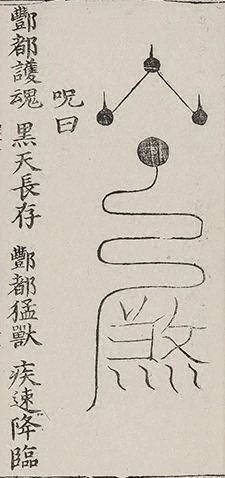 煞
呪曰
酆都護魂 黑天長存 酆都猛獸 疾速降臨